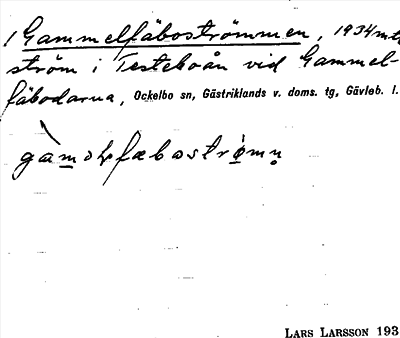 / Gammelfäboströmmen, 1934 mtb
ström i Testeboån vid Gammel-
fäbodarna, Ockelbo sn, Gästriklands v. doms. tg, Gävleb. l.
LARS LARSSON 193